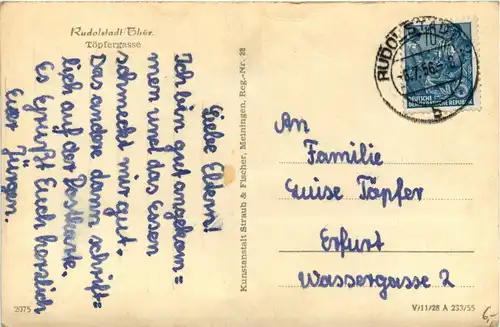 Rudolstadt/Thür.
Töpfergasse
Liebe Eltern!
Ich bin gut angekom=
men und das Essen
schmeckt mir gut.
Das andere dann schrift=
lich auf der Postkarte.
Es grüßt Euch herzlich
Euer Jürgen.
2075
Kunstanstalt Straub & Fischer, Meiningen, Reg.-Nr. 28
RUDOLSTADT
DEUTSCHE
DEMOKRATISCHE REPUBLIK
10
b
An
Familie
Luise Töpfer
Erfurt
Wassergasse 2
V/11/28 A 233/55
6,-